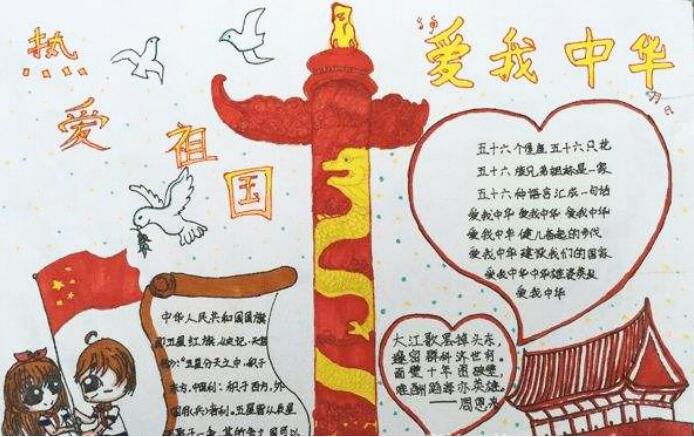 热爱祖国
爱我中华
五十六个星座五十六只花
五十六族兄弟姐妹是一家
五十六种语言汇成一句话
爱我中华 爱我中华 爱我中华
爱我中华 健儿奋起的步伐
爱我中华 建设我们的国家
爱我中华中华雄姿英发
爱我中华
中华人民共和国国旗
五星红旗
五星分天之中，积于
东方，中国利；积于西方，外
国用(兵)者利。五星皆从辰星
大江歌罢掉头东，
邃密群科济世穷。
面壁十年图破壁，
难酬蹈海亦英雄
——周恩来